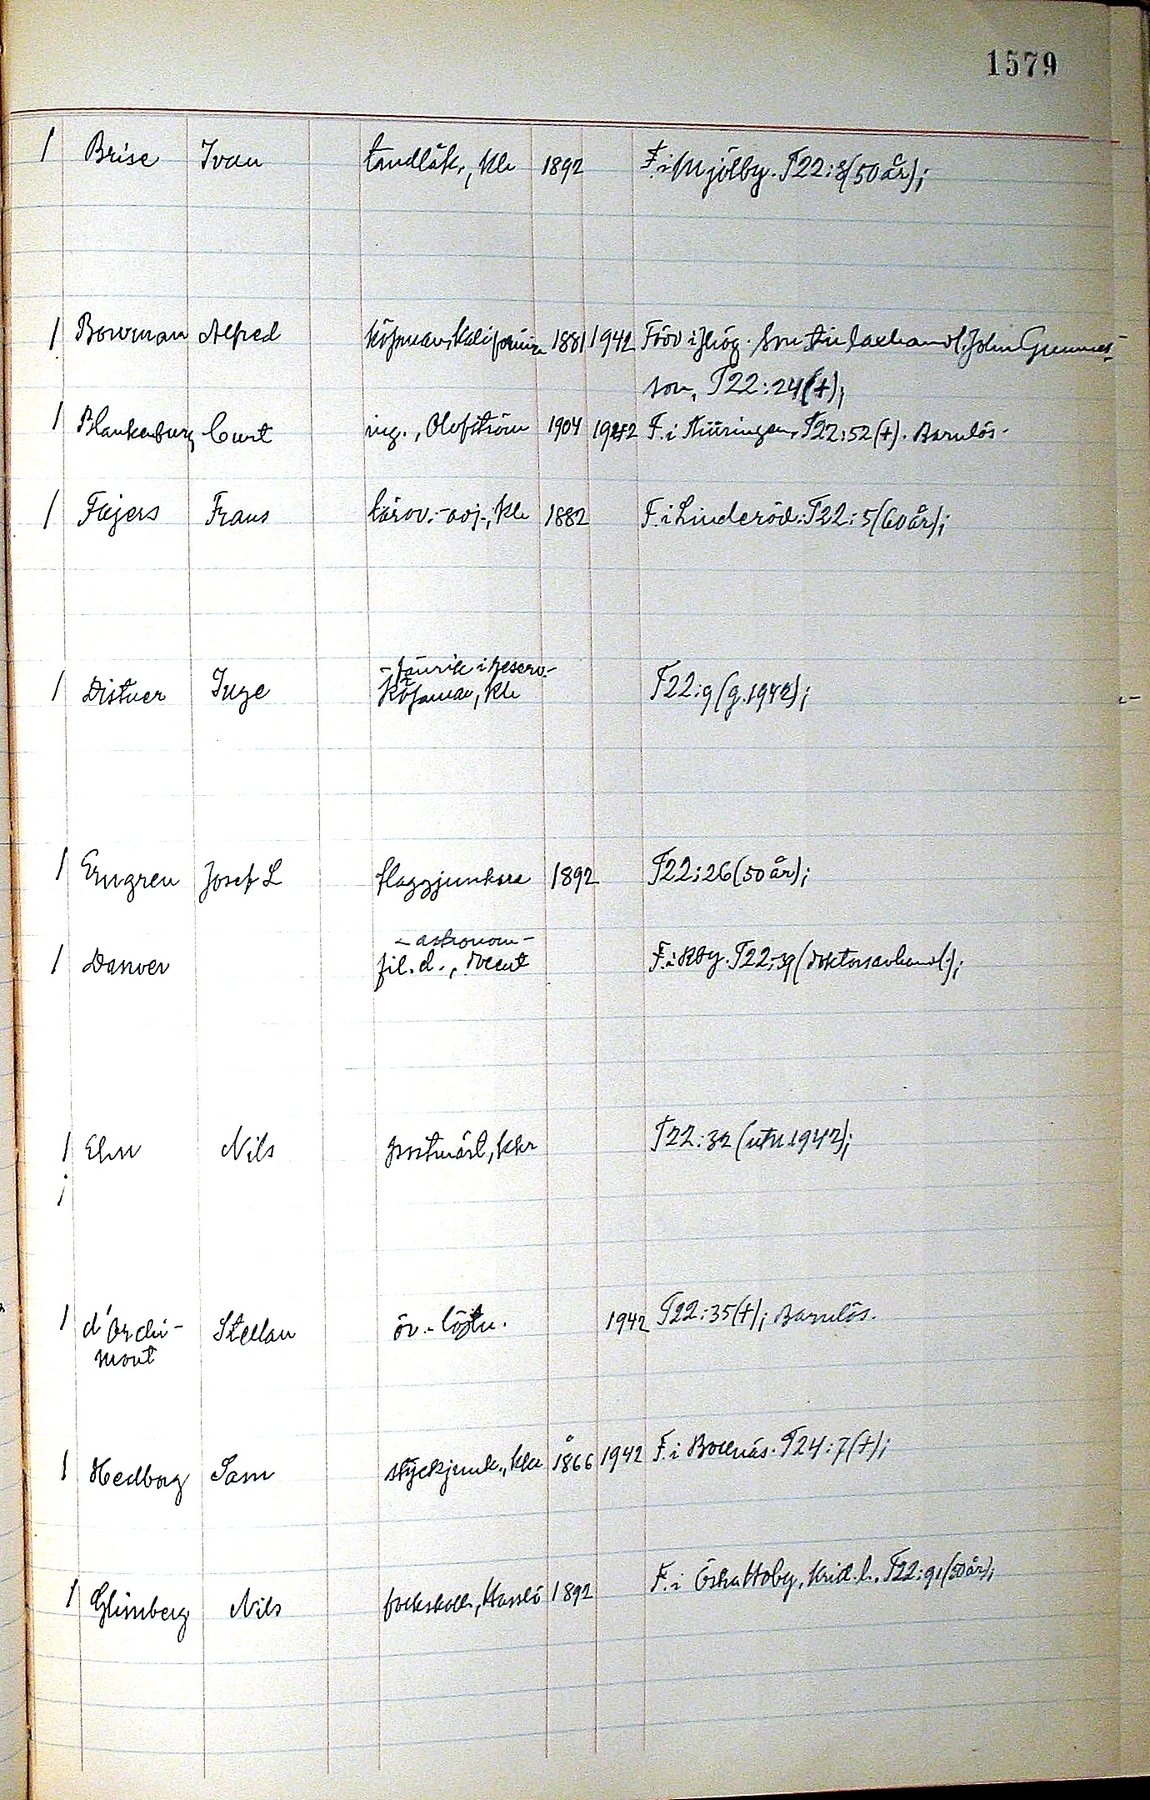 1579
1 Brise Ivan tandläk., Kh 1892 F. i Mjölby. T22:8 (50 år);
1 Bowman Alfred köpman, Kalifornien 1881 1942 Född i Hög. Son till lachandl. John Gunnars-
son, T22:24 (+);
1 Blankenburg Curt ing., Olofström 1904 1942 F. i Thüringen, T22:52 (+). Barnlös.
1 Fajers Frans lärov.-adj., Kh 1882 F. i Linderöd. T22:5 (60 år);
- fänrik i reserv.-
1 Distner Inge Köpman, Kh T22:9 (g. 1942);
1 Erngren Josef L flaggjunkare 1892 T22:26 (50 år);
- astronom -
1 Danver fil. d., docent F. i Rby. T22:39 (doktorsavhandl.);
1 Ehn Nils postmäst, Kkr T22:32 (utn 1942);
;
1 d'Orchi- Stellan öv.-löjtn. 1942 T22:35 (+); Barnlös.
mont
1 Hedborg Sam styckjunk., Kka 1866 1942 F. i Bollnäs. T24:7 (+);
1 Glimberg Nils folkskoll., Hasslö 1892 F. i Östra Hoby, Krid. l., T22:91 (50 år);